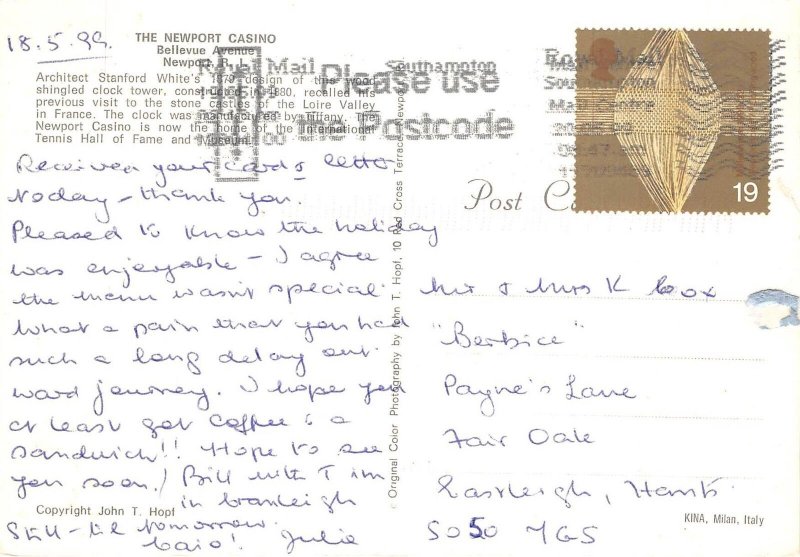 18.5.99.
THE NEWPORT CASINO
Bellevue Avenue
Newport, R. I.
Architect Stanford White's 1879 design of this wood
shingled clock tower, constructed in 1880, recalled his
previous visit to the stone castles of the Loire Valley
in France. The clock was manufactured by Tiffany. The
Newport Casino is now the home of the International
Tennis Hall of Fame and Museum.
Royal Mail
Southampton
Please use
the Postcode
Royal Mail
Southampton
Mail Centre
19
Post
Received your card & letter
today – thank you.
Pleased to know the holiday
was enjoyable – I agree
the menu wasn't special
What a pain that you had
such a long delay out
ward journey. I hope you
at least got coffee & a
sandwich!! Hope to see
you soon! Bill with Tim
in Cranleigh
till tomorrow.
Julie
Copyright John T. Hopf
© Original Color Photography by John T. Hopf, 10 Red Cross Terrace, Newport, R.I.
Mr & Mrs K Cox
"Berbice"
Payne's Lane
Fair Oak
Eastleigh, Hants
SO50 7GS
KINA, Milan, Italy